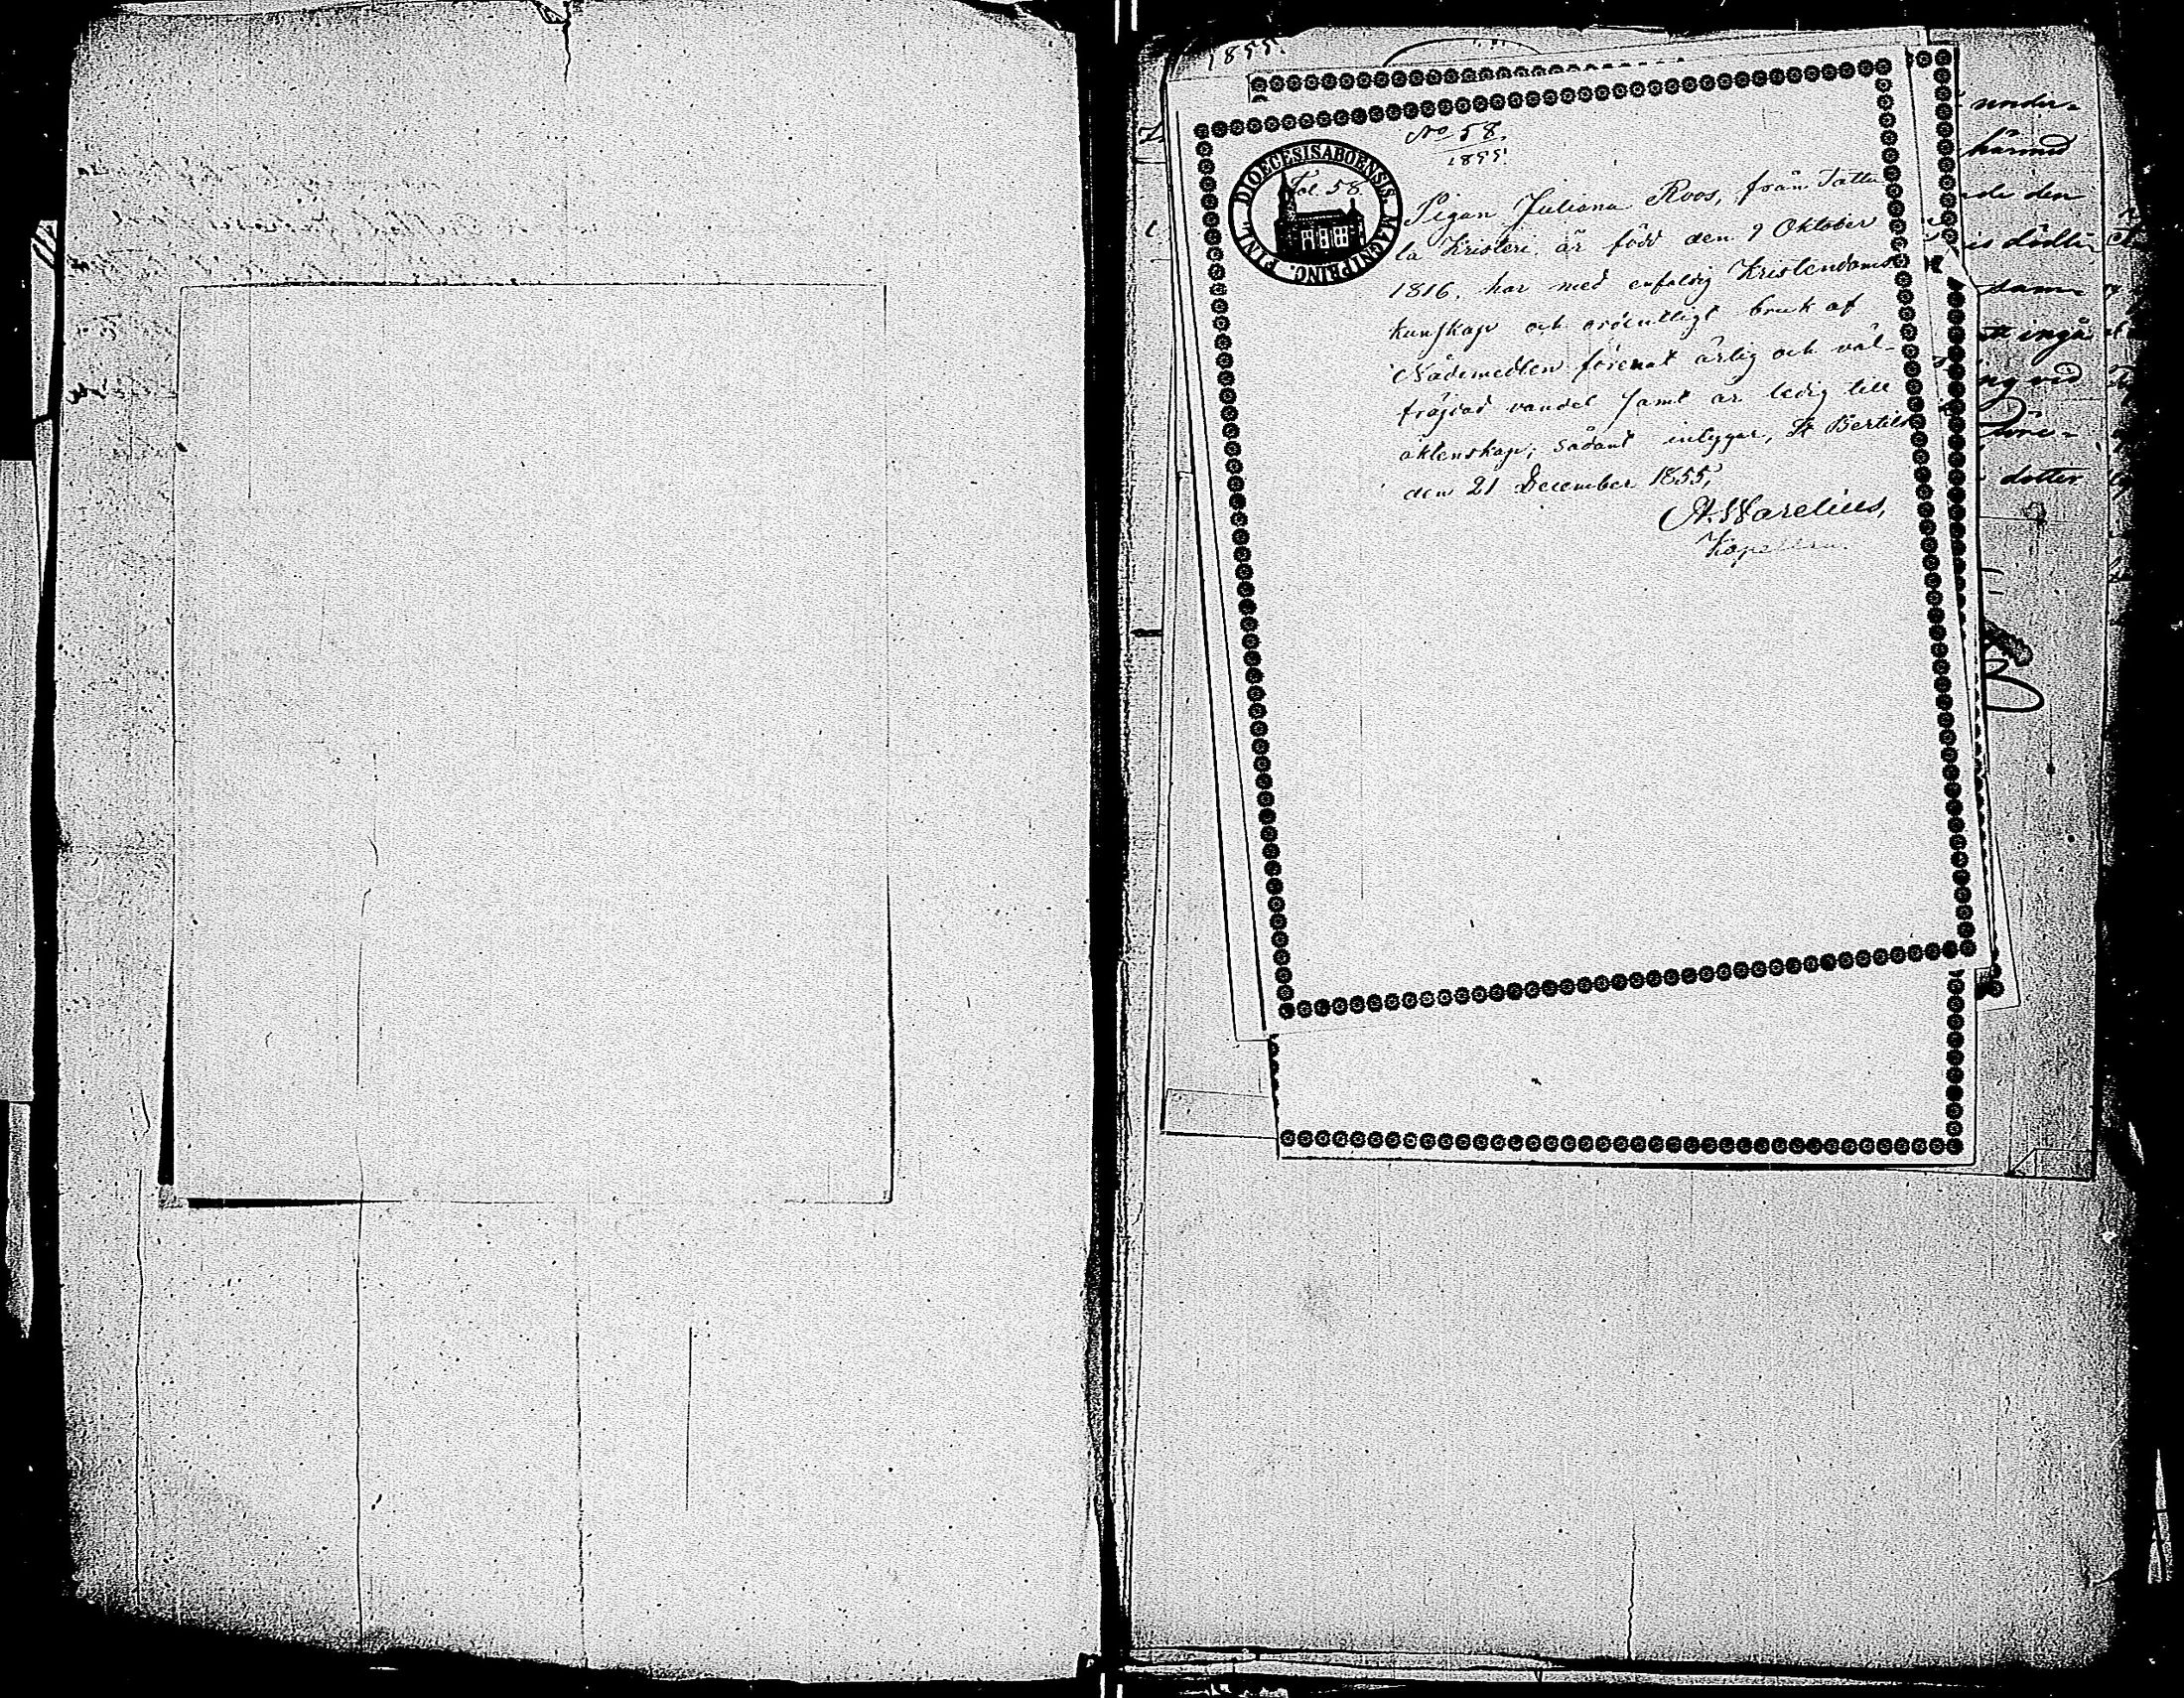 1855.
No 58.
1855.
DIOECESIS ABOENSIS MAGNI PRINC. FINL.
Fol. 58
Pigan Juliana Roos, från Tattu
la Kristeri, är född den 9 Oktober
1816, har med enfaldig Kristendoms
kunskap och ordentligt bruk af
Nådemedlen förenat ärlig och väl-
fräjdad vandel samt är ledig till
äktenskap; sådant intygar, St Bertils
den 21 December 1855,
A. Warelius,
Kapellan.
under-
härmed
den
sam-
ingå
vid
dotter